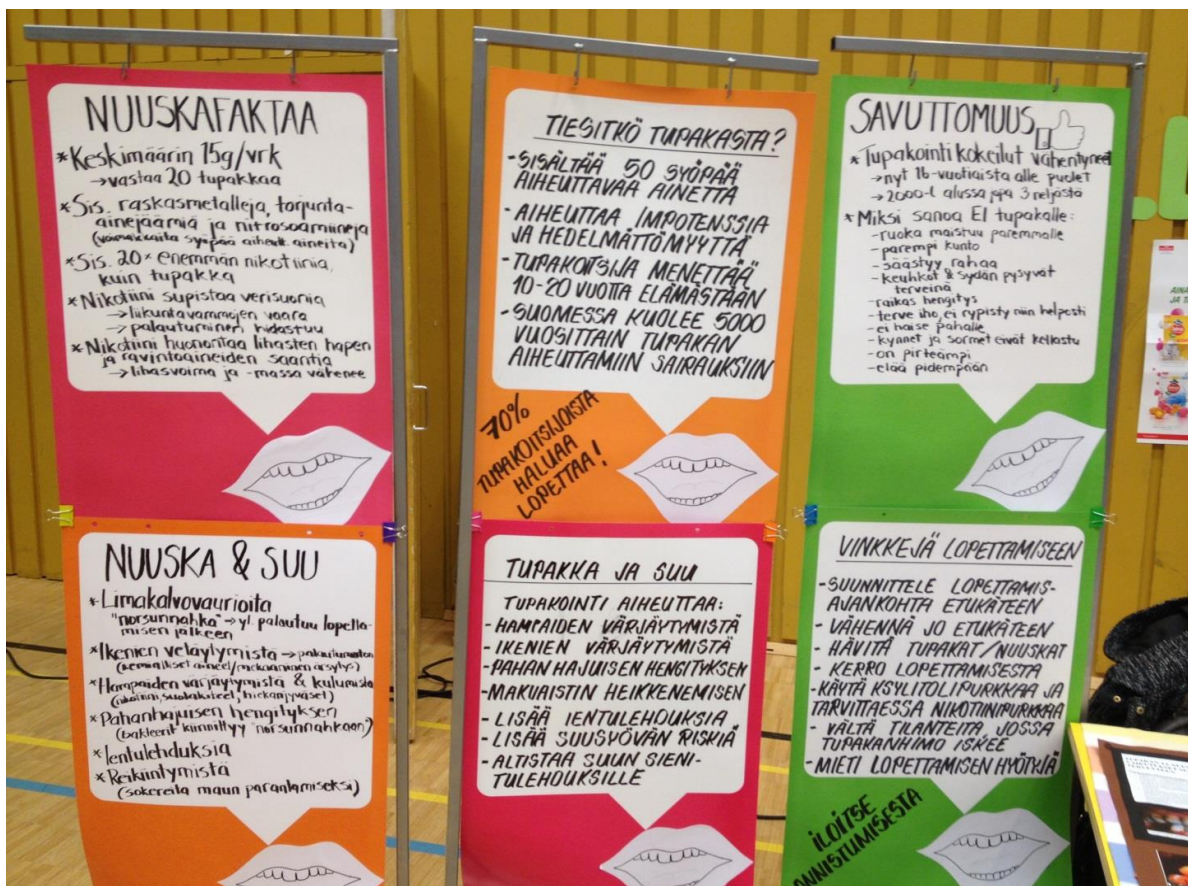 NUUSKAFAKTAA
* Keskimäärin 15g/vrk
→ vastaa 20 tupakkaa
* Sis. raskasmetalleja, torjunta-
ainejäämiä ja nitrosoamiineja
(voimakkaita syöpää aiheutt. aineita)
* Sis. 20* enemmän nikotiinia,
kuin tupakka
* Nikotiini supistaa verisuonia
→ liikuntavammojen vaara
→ palautuminen hidastuu
* Nikotiini huonontaa lihasten hapen
ja ravintoaineiden saantia
→ lihasvoima ja -massa vähenee
NUUSKA & SUU
* Limakalvovaurioita
"norsunnahka" → yl. palautuu lopetta-
misen jälkeen
* Ikenien vetäytymistä →
(kemialliset aineet/mekaaninen ärsytys)
* Hampaiden värjäytymistä & kulumista
* Pahanhajuisen hengityksen
(bakteerit kiinnittyy "norsunnahkaan")
* Ientulehduksia
* Reikiintymistä
(sokereita maun parantamiseksi)
TIESITKÖ TUPAKASTA?
- SISÄLTÄÄ 50 SYÖPÄÄ
AIHEUTTAVAA AINETTA
- AIHEUTTAA IMPOTENSSIA
JA HEDELMÄTTÖMYYTTÄ
- TUPAKOITSIJA MENETTÄÄ
10-20 VUOTTA ELÄMÄSTÄÄN
- SUOMESSA KUOLEE 5000
VUOSITTAIN TUPAKAN
AIHEUTTAMIIN SAIRAUKSIIN
70%
TUPAKOITSIJOISTA
HALUAA
LOPETTAA!
TUPAKKA JA SUU
TUPAKOINTI AIHEUTTAA:
- HAMPAIDEN VÄRJÄYTYMISTÄ
- IKENIEN VÄRJÄYTYMISTÄ
- PAHAN HAJUISEN HENGITYKSEN
- MAKUAISTIN HEIKKENEMISEN
- LISÄÄ IENTULEHDUKSIA
- LISÄÄ SUUSYÖVÄN RISKIÄ
- ALTISTAA SUUN SIENI-
TULEHDUKSILLE
SAVUTTOMUUS
* Tupakointi kokeilut vähentyneet
→ nyt 16-vuotiaista alle puolet
→ 2000-l alussa jopa 3 neljästä
* Miksi sanoa EI tupakalle:
- ruoka maistuu paremmalle
- parempi kunto
- säästyy rahaa
- keuhkot & sydän pysyvät
terveinä
- raikas hengitys
- terve iho, ei rypisty niin helposti
- ei haise pahalle
- kynnet ja sormet eivät kellastu
- on pirteämpi
- elää pidempään
VINKKEJÄ LOPETTAMISEEN
- SUUNNITTELE LOPETTAMIS-
AJANKOHTA ETUKÄTEEN
- VÄHENNÄ JO ETUKÄTEEN
- HÄVITÄ TUPAKAT/NUUSKAT
- KERRO LOPETTAMISESTA
- KÄYTÄ KSYLITOLIPURKKAA JA
TARVITTAESSA NIKOTIINIPURKKAA
- VÄLTÄ TILANTEITA, JOSSA
TUPAKANHIMO ISKEE
- MIETI LOPETTAMISEN HYÖTYJÄ
ILOITSE
ONNISTUMISESTA